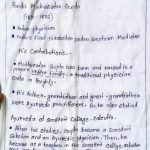 Pandit Madhusudan Gupta
(1800-1856)
Indian physician
India's first dissector under western Medicine
His Contributions..
Madhusudan Gupta was born and raised in a
family - traditional physician
His grandfather and great-grandfather
were Ayurveda practitioner. So he also studied
Ayurveda at Sanskrit College, Calcutta.
After his studies, Gupta became a Sanskrit
scholar and an Ayurvedic physician. Then, he
became as a teacher in the Sanskrit college, Calcutta